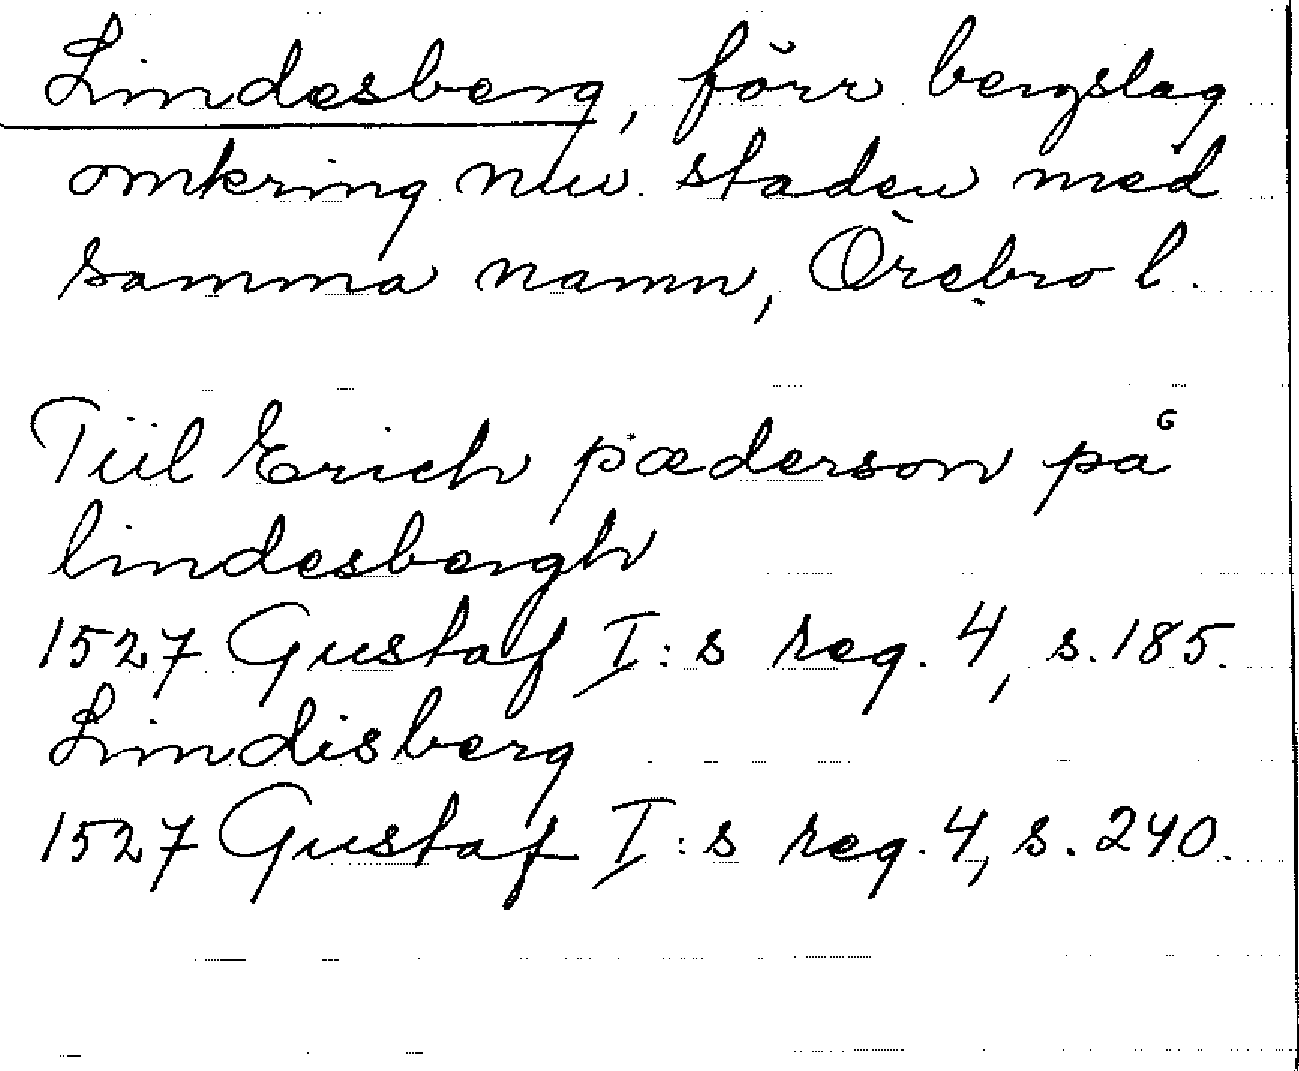 Lindesberg, förr bergslag
omkring nuv. staden med
samma namn, Örebro l.
Tiil Erich pæderson på
lindesbergh
1527 Gustaf I:s reg. 4, s. 185.
Lindisberg
1527 Gustaf I:s reg. 4, s. 240.